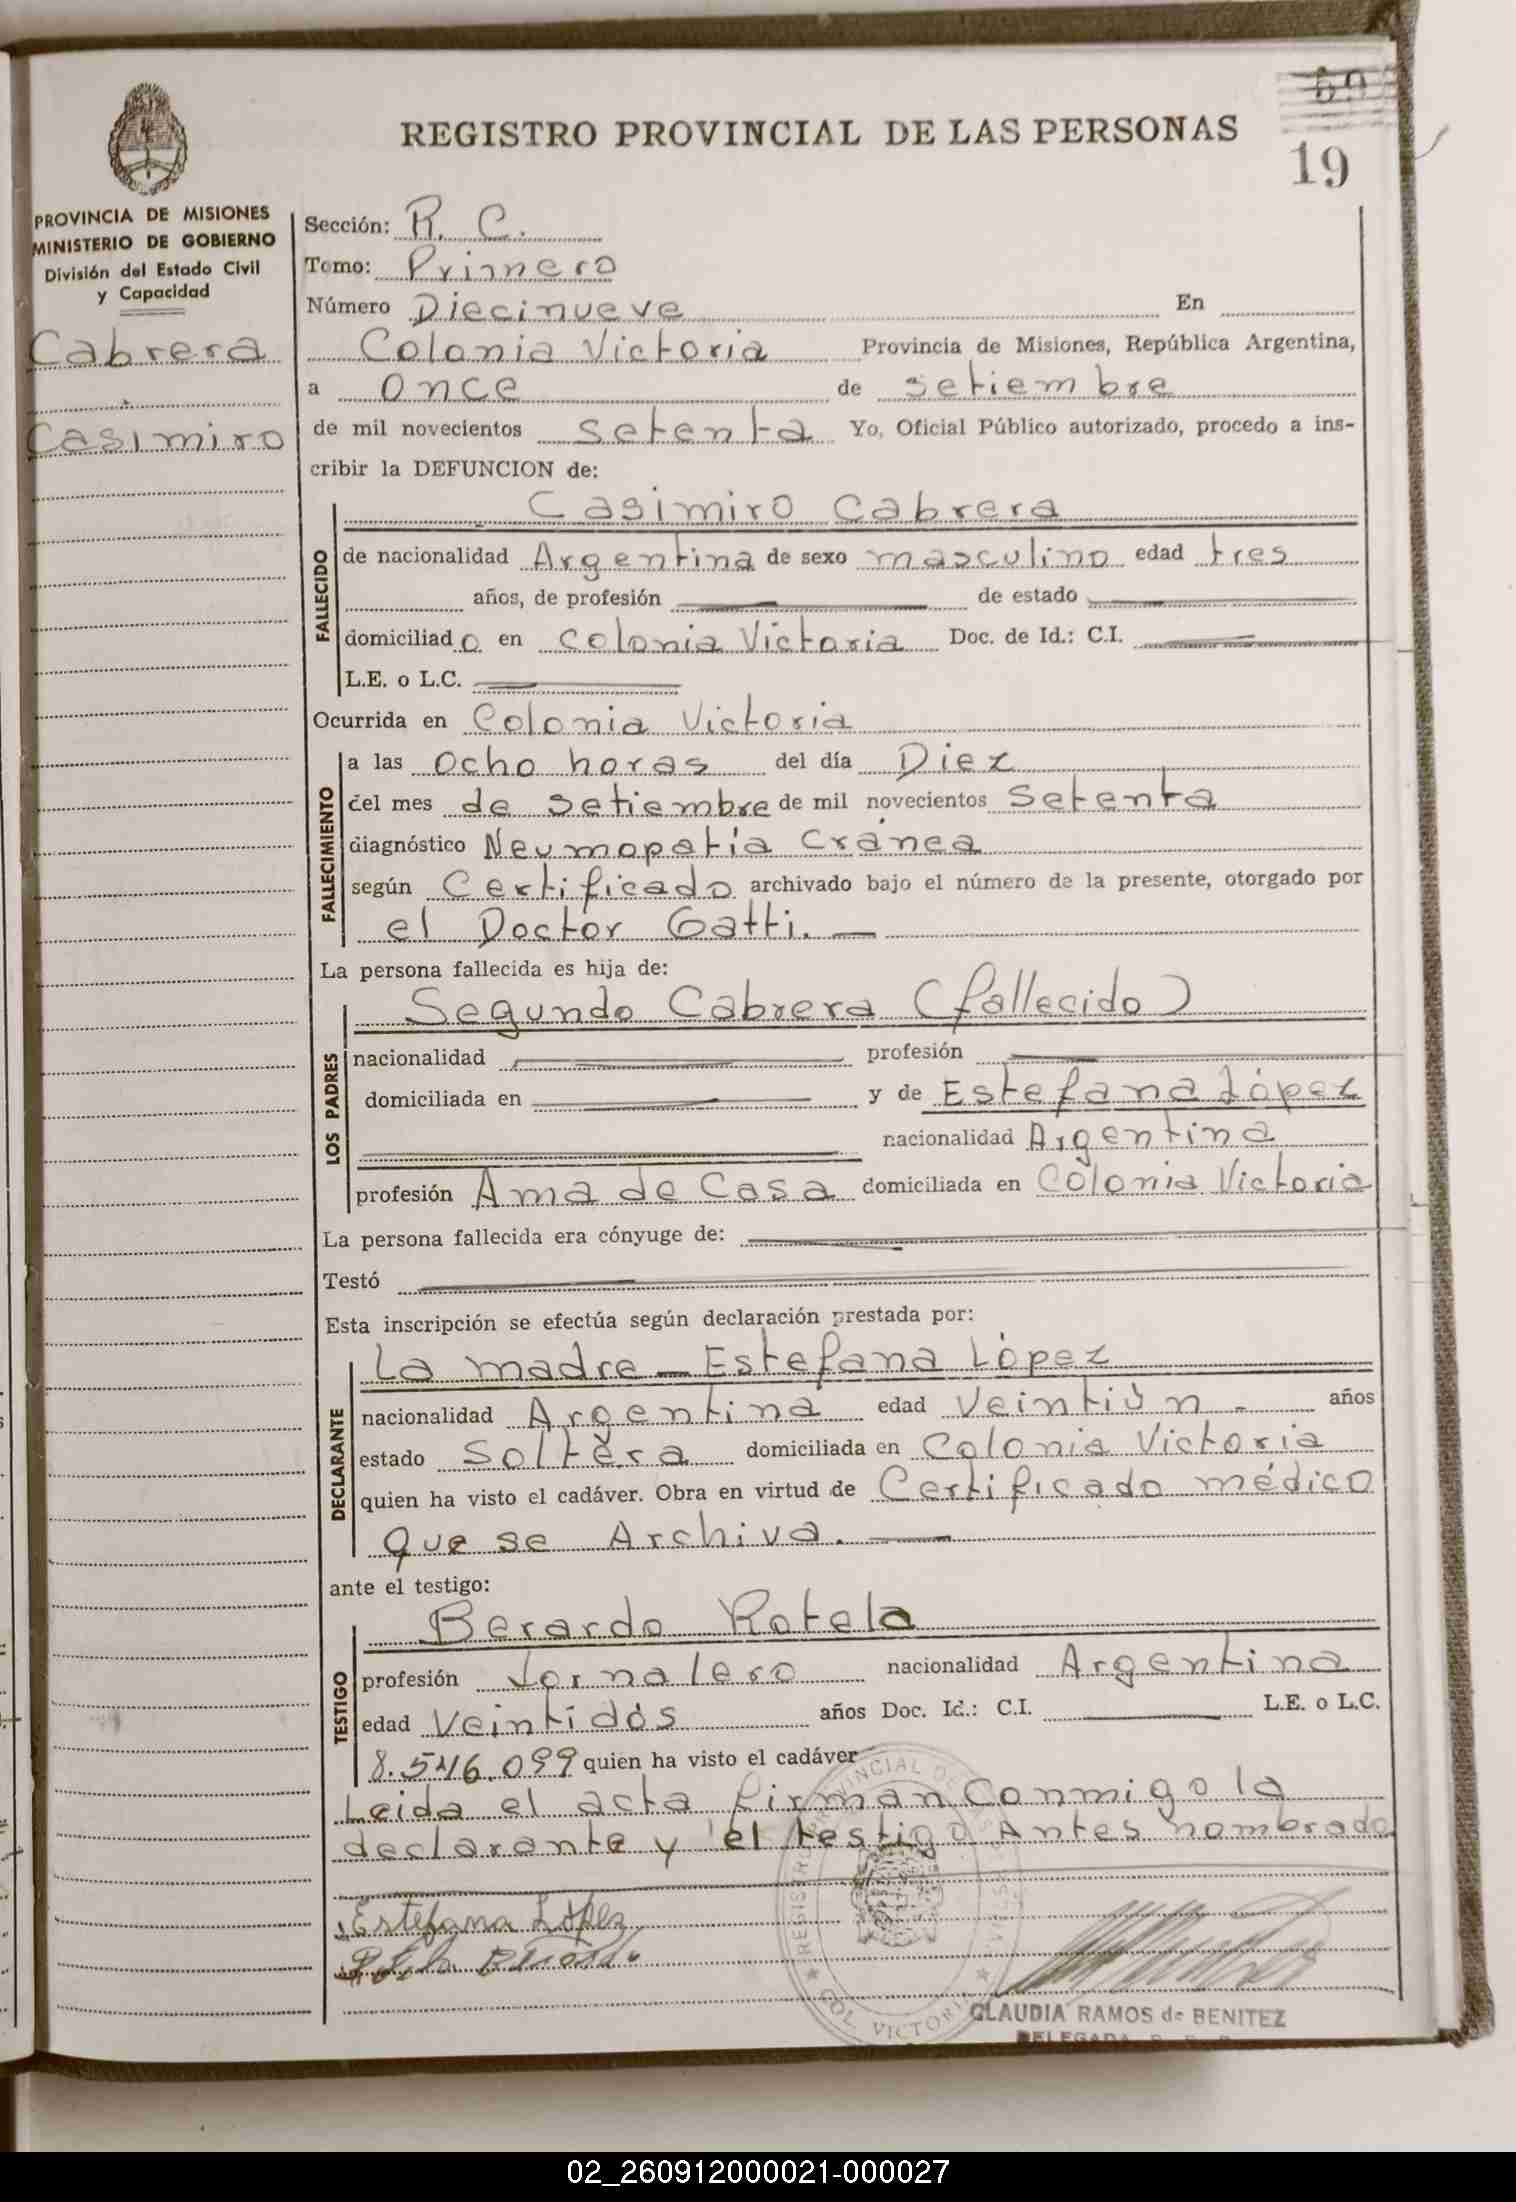 REGISTRO PROVINCIAL DE LAS PERSONAS
19
PROVINCIA DE MISIONES
MINISTERIO DE GOBIERNO
División del Estado Civil
y Capacidad
Cabrera
Casimiro
Sección: R. C.
Tomo: Primero
Número Diecinueve En
Colonia Victoria Provincia de Misiones, República Argentina,
a once de setiembre
de mil novecientos setenta Yo, Oficial Público autorizado, procedo a ins-
cribir la DEFUNCION de:
Casimiro Cabrera
FALLECIDO
de nacionalidad Argentina de sexo masculino edad tres
años, de profesión de estado
domiciliado en Colonia Victoria Doc. de Id.: C.I.
L.E. o L.C.
Ocurrida en Colonia Victoria
FALLECIMIENTO
a las ocho horas del día Diez
del mes de setiembre de mil novecientos setenta
diagnóstico Neumopatía Cránea
según Certificado archivado bajo el número de la presente, otorgado por
el Doctor Gatti. —
La persona fallecida es hija de:
LOS PADRES
Segundo Cabrera (fallecido)
nacionalidad profesión
domiciliada en y de Estefana López
nacionalidad Argentina
profesión Ama de Casa domiciliada en Colonia Victoria
La persona fallecida era cónyuge de:
Testó
Esta inscripción se efectúa según declaración prestada por:
DECLARANTE
La madre — Estefana López
nacionalidad Argentina edad Veintiún - años
estado Soltera domiciliada en Colonia Victoria
quien ha visto el cadáver. Obra en virtud de Certificado médico
que se Archiva. —
ante el testigo:
TESTIGO
Berardo Rotela
profesión Jornalero nacionalidad Argentina
edad Veintidós años Doc. Id.: C.I. L.E. o L.C.
8.546.099 quien ha visto el cadáver
Leida el acta firman conmigo la
declarante y el testigo Antes nombrado
Estefana López
COL. VICTORIA
CLAUDIA RAMOS de BENITEZ
DELEGADA
02_260912000021-000027